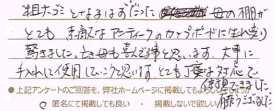 粗大ゴミとなるはずだった母の棚が
とても素敵なアンティークのカップボードに生れ変り
驚きました。亡き母も喜んでる様と思います。大事に
手入れして使用していこうと思います。とても丁寧な対応で
●上記アンケートのご回答を、弊社ホームページに掲載しても
匿名にて掲載しても良い・掲載しないで欲しい